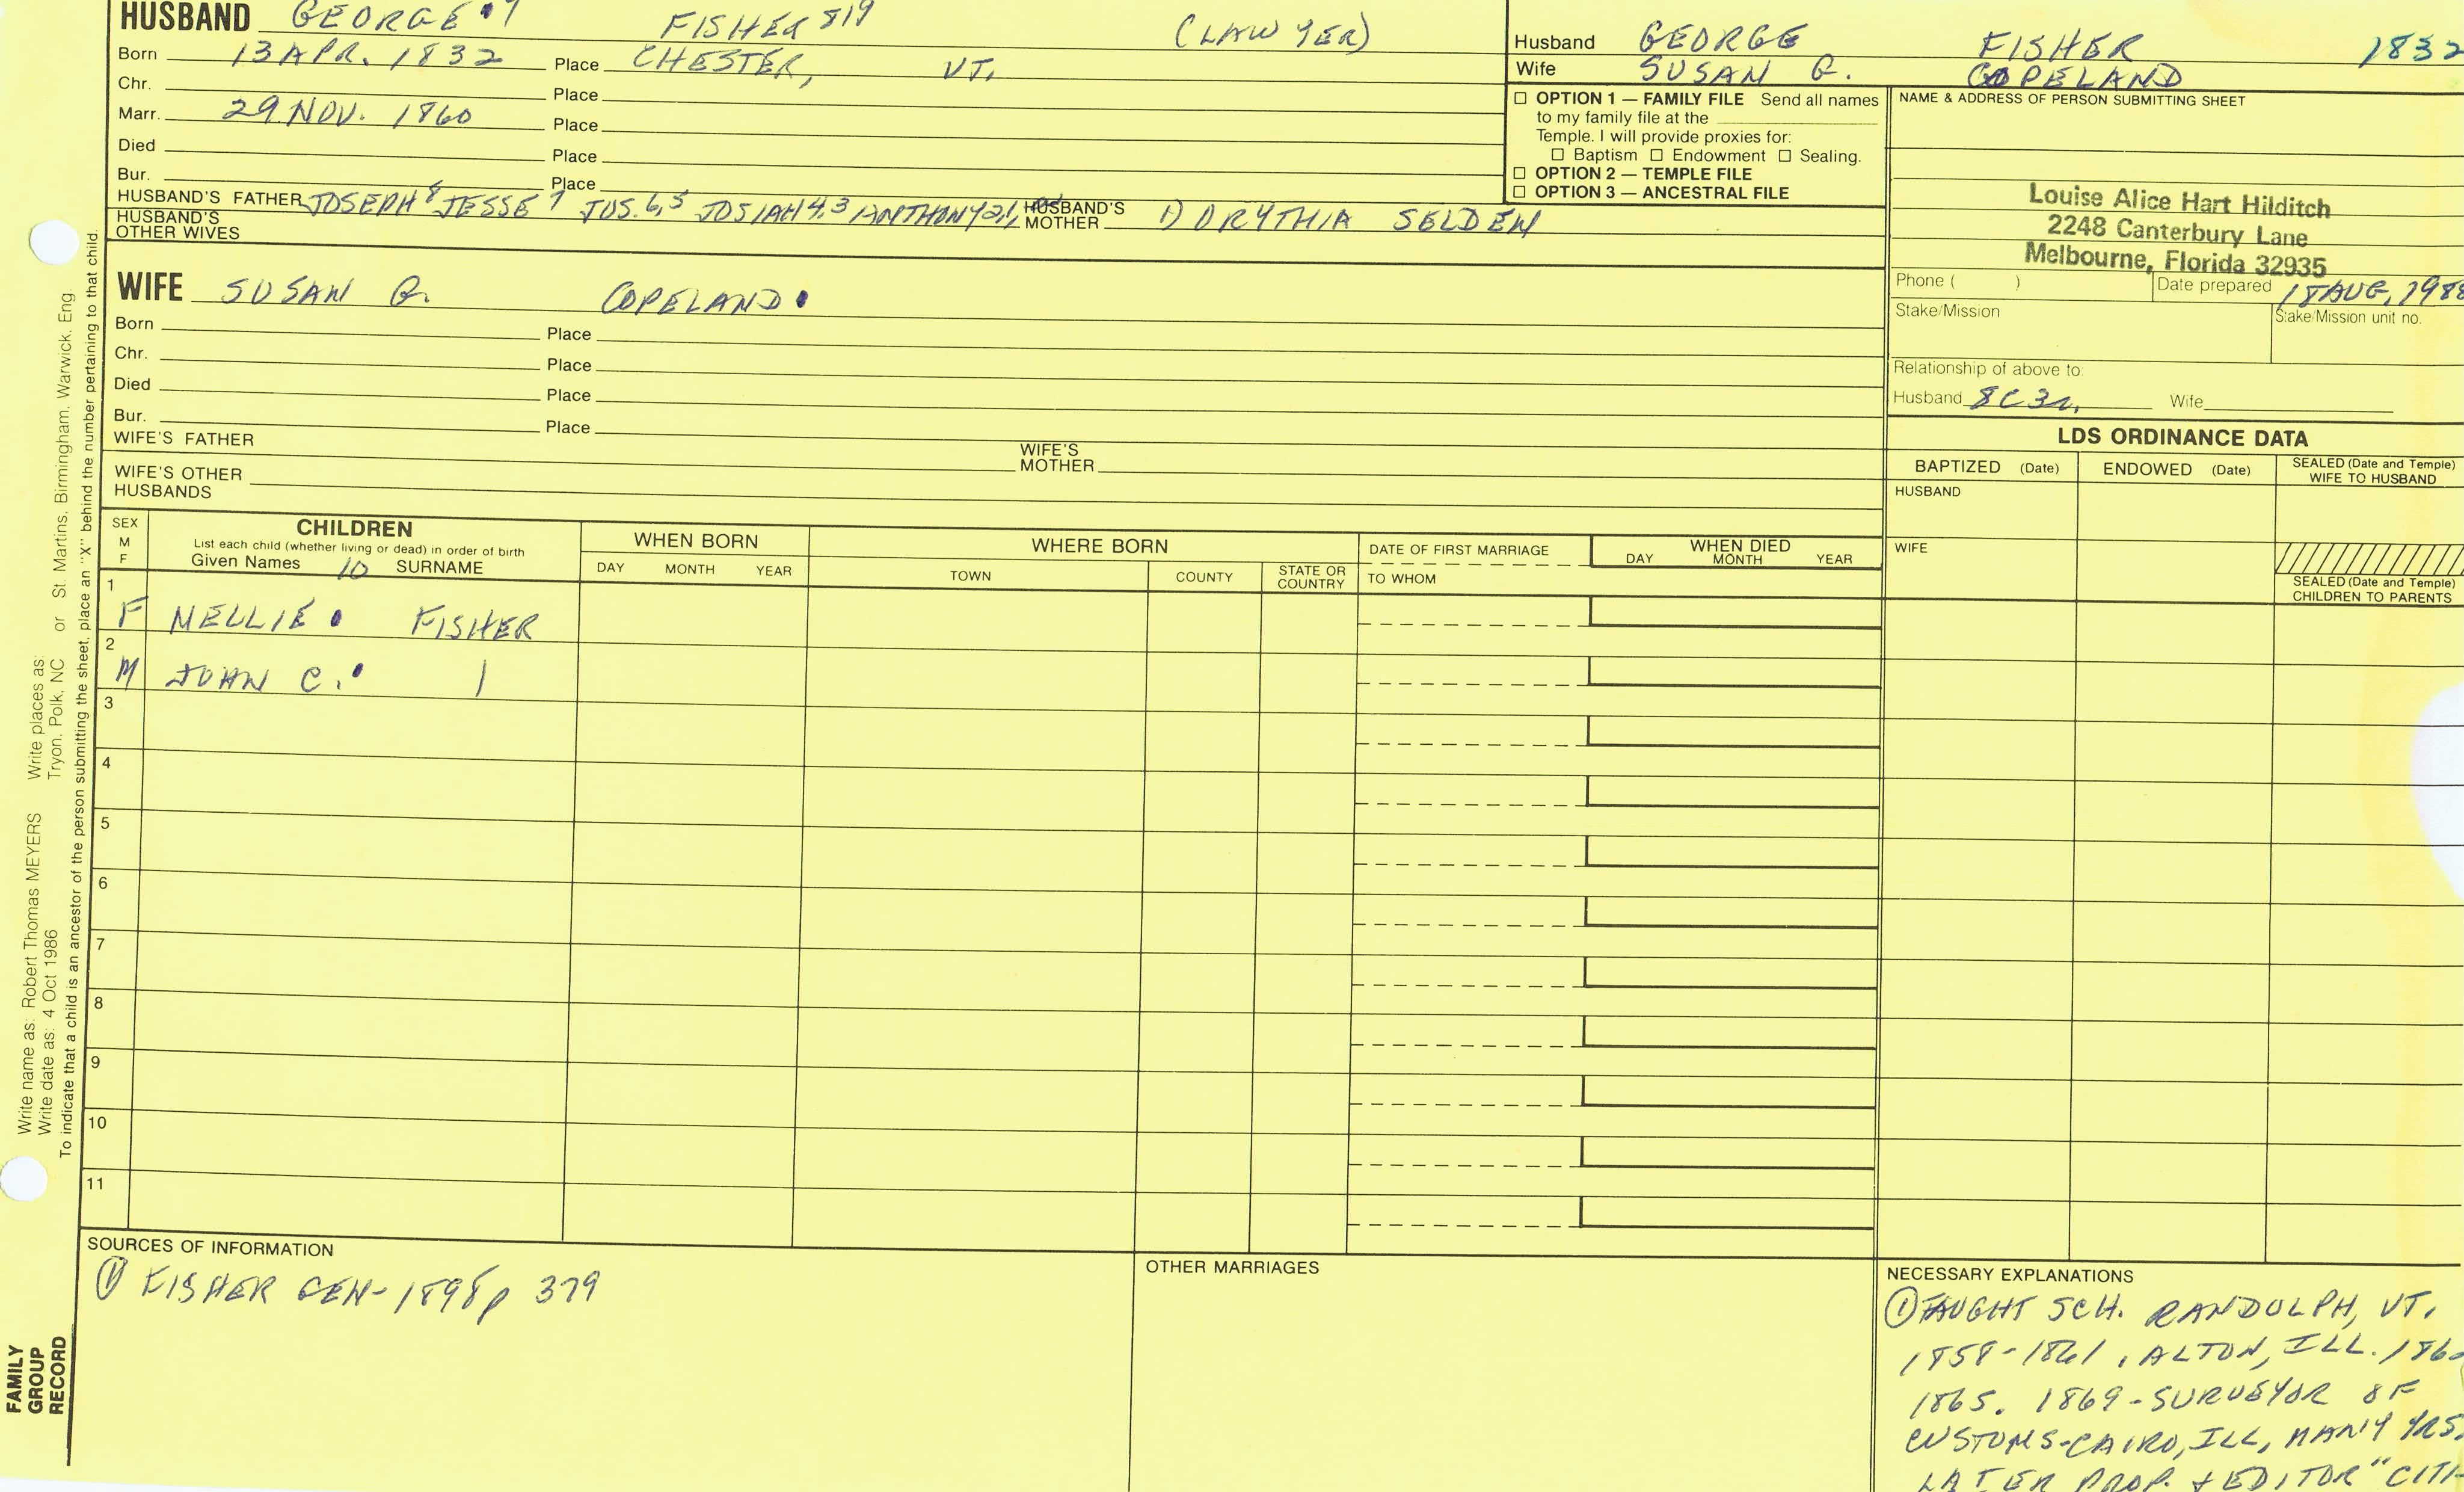 HUSBAND GEORGE 9 FISHER 819 (LAWYER)
Born 13 APR. 1832 Place CHESTER, VT.
Chr. Place
Marr. 29 NOV. 1860 Place
Died Place
Bur. Place
HUSBAND'S FATHER JOSEPH 8 JESSE 7 JOS. 6,5 JOSIAH 4,3 ANTHONY 2,1, HUSBAND'S MOTHER DORYTHIA SELDEN
HUSBAND'S OTHER WIVES
Husband GEORGE FISHER 1832
Wife SUSAN G. COPELAND
☐ OPTION 1 — FAMILY FILE Send all names
to my family file at the
Temple. I will provide proxies for:
☐ Baptism ☐ Endowment ☐ Sealing.
☐ OPTION 2 — TEMPLE FILE
☐ OPTION 3 — ANCESTRAL FILE
NAME & ADDRESS OF PERSON SUBMITTING SHEET
Louise Alice Hart Hilditch
2248 Canterbury Lane
Melbourne, Florida 32935
Phone ( ) Date prepared 18 AUG, 198
Stake/Mission Stake/Mission unit no.
Relationship of above to:
Husband 8C3r. Wife
WIFE SUSAN G. COPELAND
Born Place
Chr. Place
Died Place
Bur. Place
WIFE'S FATHER WIFE'S MOTHER
WIFE'S OTHER
HUSBANDS
LDS ORDINANCE DATA
BAPTIZED (Date) ENDOWED (Date) SEALED (Date and Temple)
WIFE TO HUSBAND
HUSBAND
WIFE
SEALED (Date and Temple)
CHILDREN TO PARENTS
SEX
M
F
CHILDREN
List each child (whether living or dead) in order of birth
Given Names 10 SURNAME
WHEN BORN
DAY MONTH YEAR
WHERE BORN
TOWN COUNTY STATE OR COUNTRY
DATE OF FIRST MARRIAGE
TO WHOM
WHEN DIED
DAY MONTH YEAR
1
F NELLIE FISHER
2
M JOHN C. |
3
4
5
6
7
8
9
10
11
SOURCES OF INFORMATION
① FISHER GEN-1898 p 379
OTHER MARRIAGES
NECESSARY EXPLANATIONS
① TAUGHT SCH. RANDOLPH, VT.
1858-1861, ALTON, ILL. 186
1865. 1869-SURVEYOR OF
CUSTOMS-CAIRO, ILL, MANY YRS.
LATER PROP. + EDITOR "CITI
Write name as: Robert Thomas MEYERS Write places as: Tryon, Polk, NC or St. Martins, Birmingham, Warwick, Eng.
Write date as: 4 Oct 1986
To indicate that a child is an ancestor of the person submitting the sheet, place an "X" behind the number pertaining to that child.
FAMILY
GROUP
RECORD